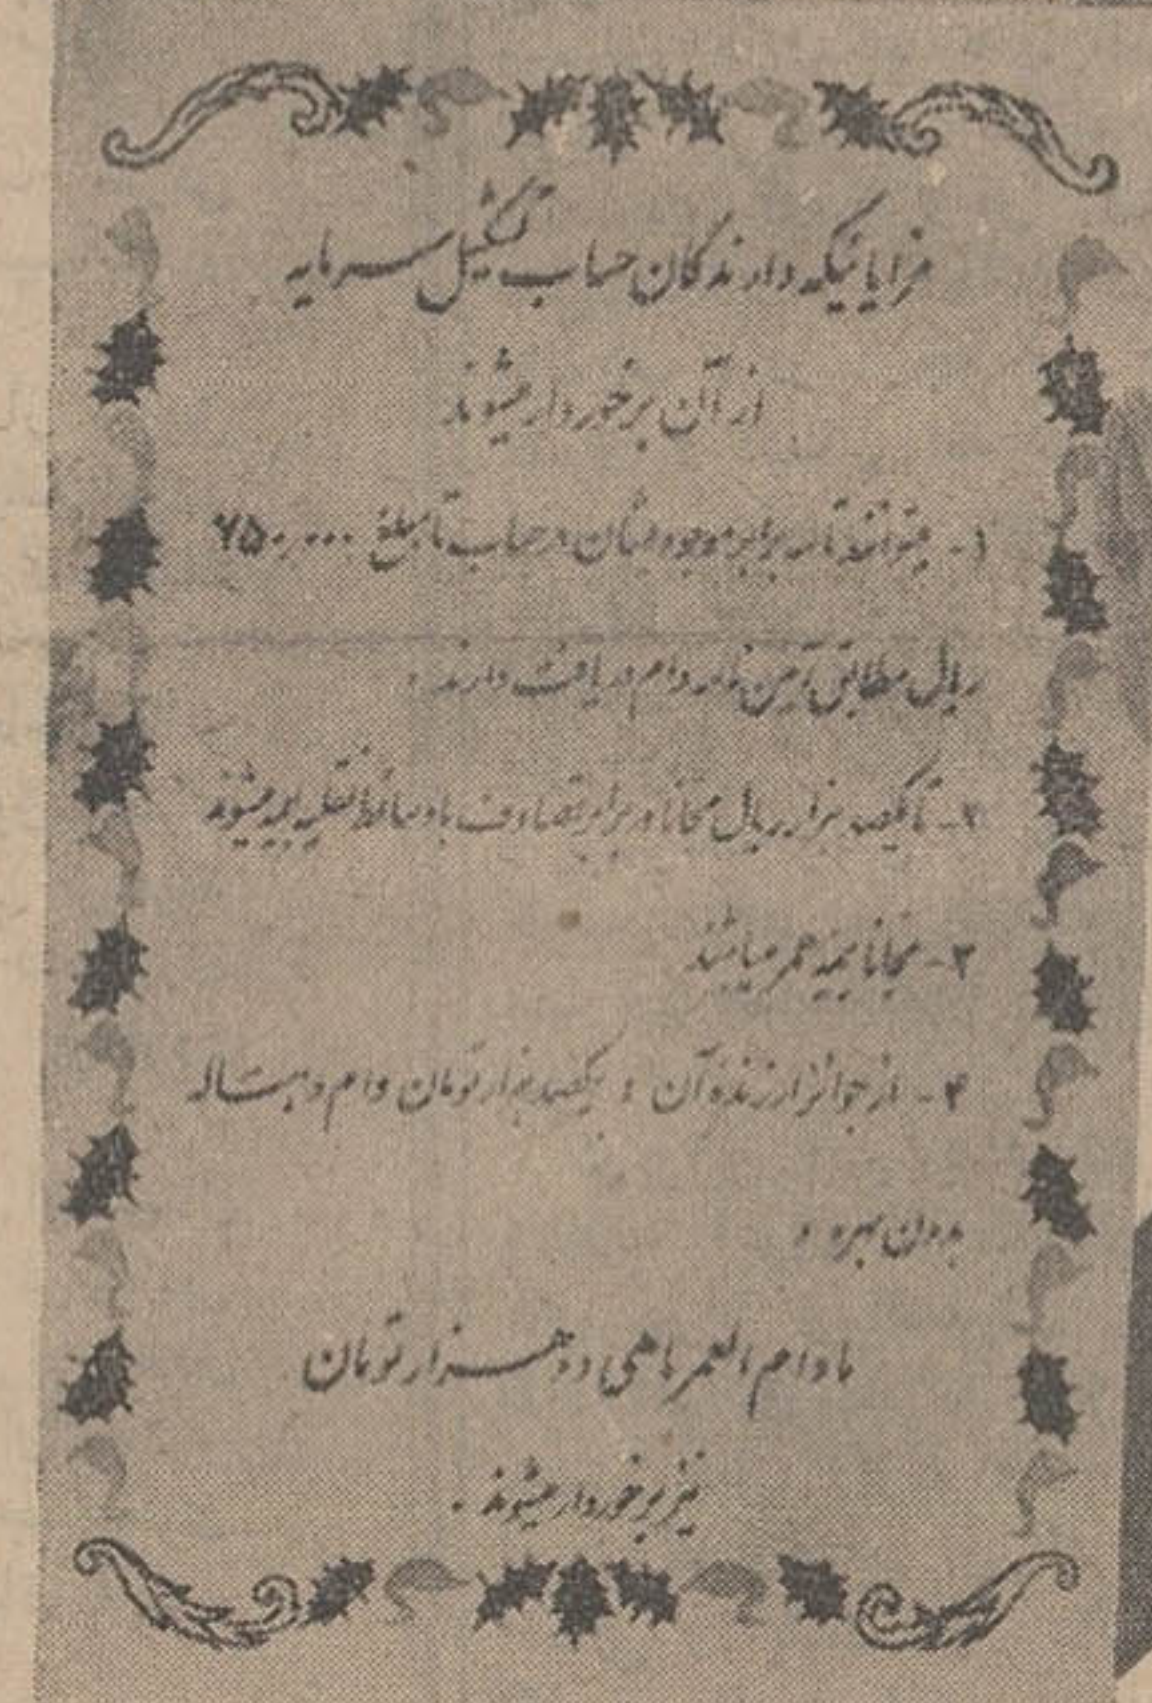 مزایائیکه دارندگان حساب تشکیل سرمایه
از آن برخوردار میشوند
۱- میتوانند تا سه برابر موجودیشان در حساب تا مبلغ ۷۵۰,۰۰۰
ریال مطابق آئین نامه وام دریافت دارند.
۲- تا یکصد هزار ریال مجاناً در برابر تصادف با وسائط نقلیه بیمه میشوند
۳- مجاناً بیمه عمر میباشند
۴- از جوائز ارزنده آن : یکصد هزار تومان وام ده ساله
بدون بهره و
مادام العمر ماهی دو هزار تومان
نیز برخوردار میشوند.